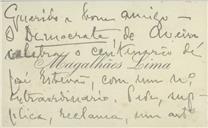 Querido e bom amigo —
O Democrata, de Aveiro
celebra o centenário de
Magalhães Lima
José Estevão, com um nº
extraordinario. Pede, sup-
plica, reclama, um art